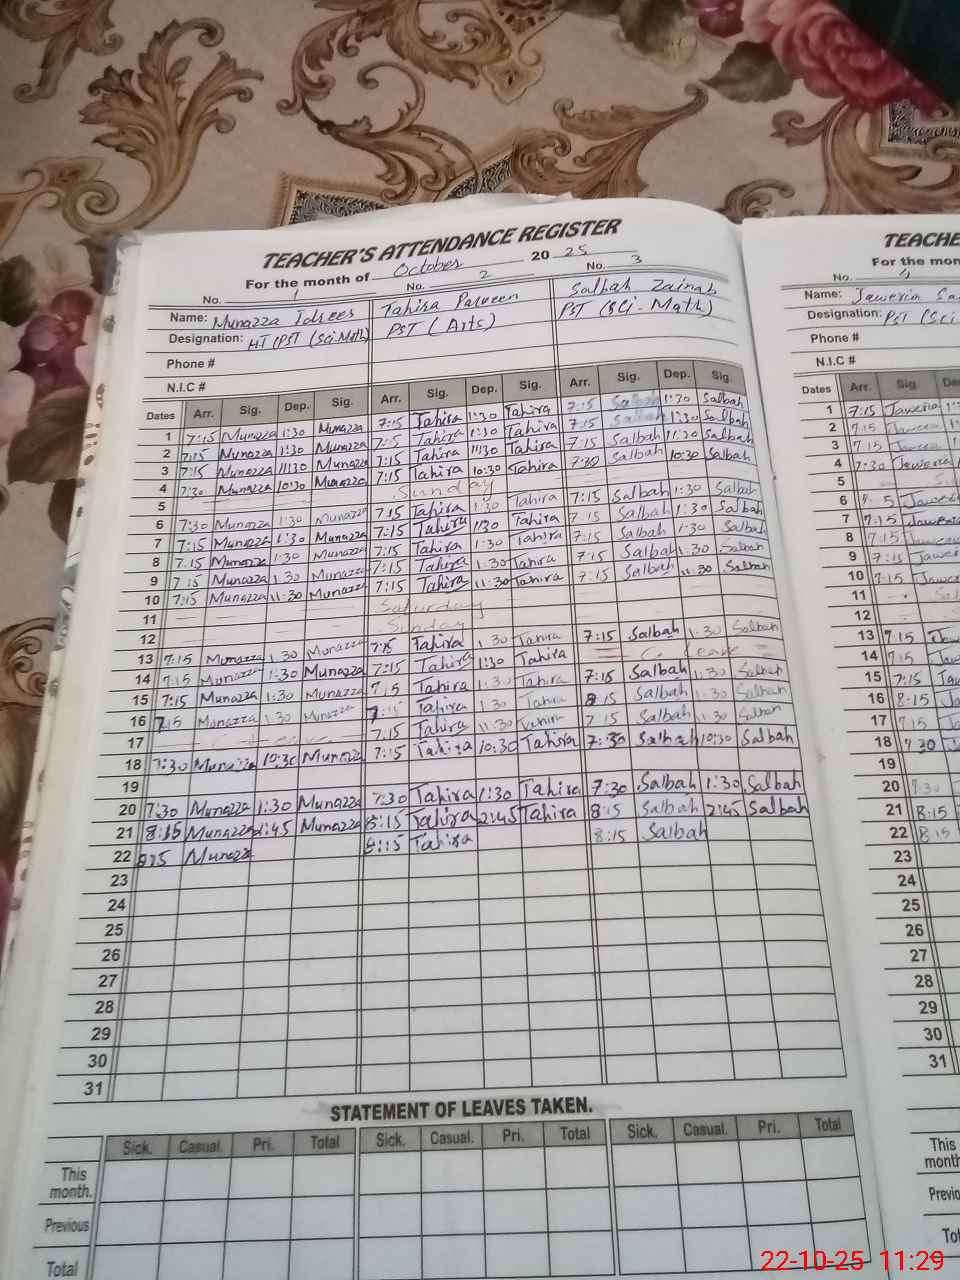 TEACHER'S ATTENDANCE REGISTER
For the month of October 2025
No. 1 No. 2 No. 3
Name: Munazza Idrees Tahira Parveen Salbah Zainab
Designation: HT (PST (Sci-Math) PST (Arts) PST (Sci-Math)
Phone #
N.I.C #
Dates Arr. Sig. Dep. Sig. Arr. Sig. Dep. Sig. Arr. Sig. Dep. Sig.
1 7:15 Munazza 1:30 Munazza 7:15 Tahira 1:30 Tahira 7:15 Salbah 1:30 Salbah
2 7:15 Munazza 1:30 Munazza 7:15 Tahira 1:30 Tahira 7:15 Salbah 1:30 Salbah
3 7:15 Munazza 11:30 Munazza 7:15 Tahira 11:30 Tahira 7:15 Salbah 11:30 Salbah
4 7:30 Munazza 10:30 Munazza 7:15 Tahira 10:30 Tahira 7:30 Salbah 10:30 Salbah
5 Sunday
6 7:30 Munazza 1:30 Munazza 7:15 Tahira 1:30 Tahira 7:15 Salbah 1:30 Salbah
7 7:15 Munazza 1:30 Munazza 7:15 Tahira 1:30 Tahira 7:15 Salbah 1:30 Salbah
8 7:15 Munazza 1:30 Munazza 7:15 Tahira 1:30 Tahira 7:15 Salbah 1:30 Salbah
9 7:15 Munazza 1:30 Munazza 7:15 Tahira 1:30 Tahira 7:15 Salbah 1:30 Salbah
10 7:15 Munazza 11:30 Munazza 7:15 Tahira 11:30 Tahira 7:15 Salbah 11:30 Salbah
11 Saturday
12 Sunday
13 7:15 Munazza 1:30 Munazza 7:15 Tahira 1:30 Tahira 7:15 Salbah 1:30 Salbah
14 7:15 Munazza 1:30 Munazza 7:15 Tahira 1:30 Tahira C. Leave
15 7:15 Munazza 1:30 Munazza 7:15 Tahira 1:30 Tahira 7:15 Salbah 1:30 Salbah
16 7:15 Munazza 1:30 Munazza 7:15 Tahira 1:30 Tahira 8:15 Salbah 1:30 Salbah
17 C Leave 7:15 Tahira 11:30 Tahira 7:15 Salbah 11:30 Salbah
18 7:30 Munazza 10:30 Munazza 7:15 Tahira 10:30 Tahira 7:30 Salbah 10:30 Salbah
19
20 7:30 Munazza 1:30 Munazza 7:30 Tahira 1:30 Tahira 7:30 Salbah 1:30 Salbah
21 8:15 Munazza 2:45 Munazza 8:15 Tahira 2:45 Tahira 8:15 Salbah 2:45 Salbah
22 8:15 Munazza 8:15 Tahira 8:15 Salbah
23
24
25
26
27
28
29
30
31
STATEMENT OF LEAVES TAKEN.
Sick. Casual. Pri. Total Sick. Casual. Pri. Total Sick. Casual. Pri. Total
This month.
Previous
Total
TEACHE
For the mon
No. 4
Name: Jaweria
Designation: PST (Sci
Phone #
N.I.C #
Dates Arr. Sig.
1 7:15 Jaweria
2 7:15 Jaweria
3 7:15 Jaweria
4 7:30 Jaweria
5
6
7 7:15 Jaweria
8 7:15 Jaweria
9 7:15 Jawer
10 7:15 Jawe
11
12
13 7:15
14 7:15
15 7:15
16 8:15
17 7:15
18 7:30
19
20 7:30
21 8:15
22 8:15
23
24
25
26
27
28
29
30
31
This
month
Previo
Tot
22-10-25 11:29